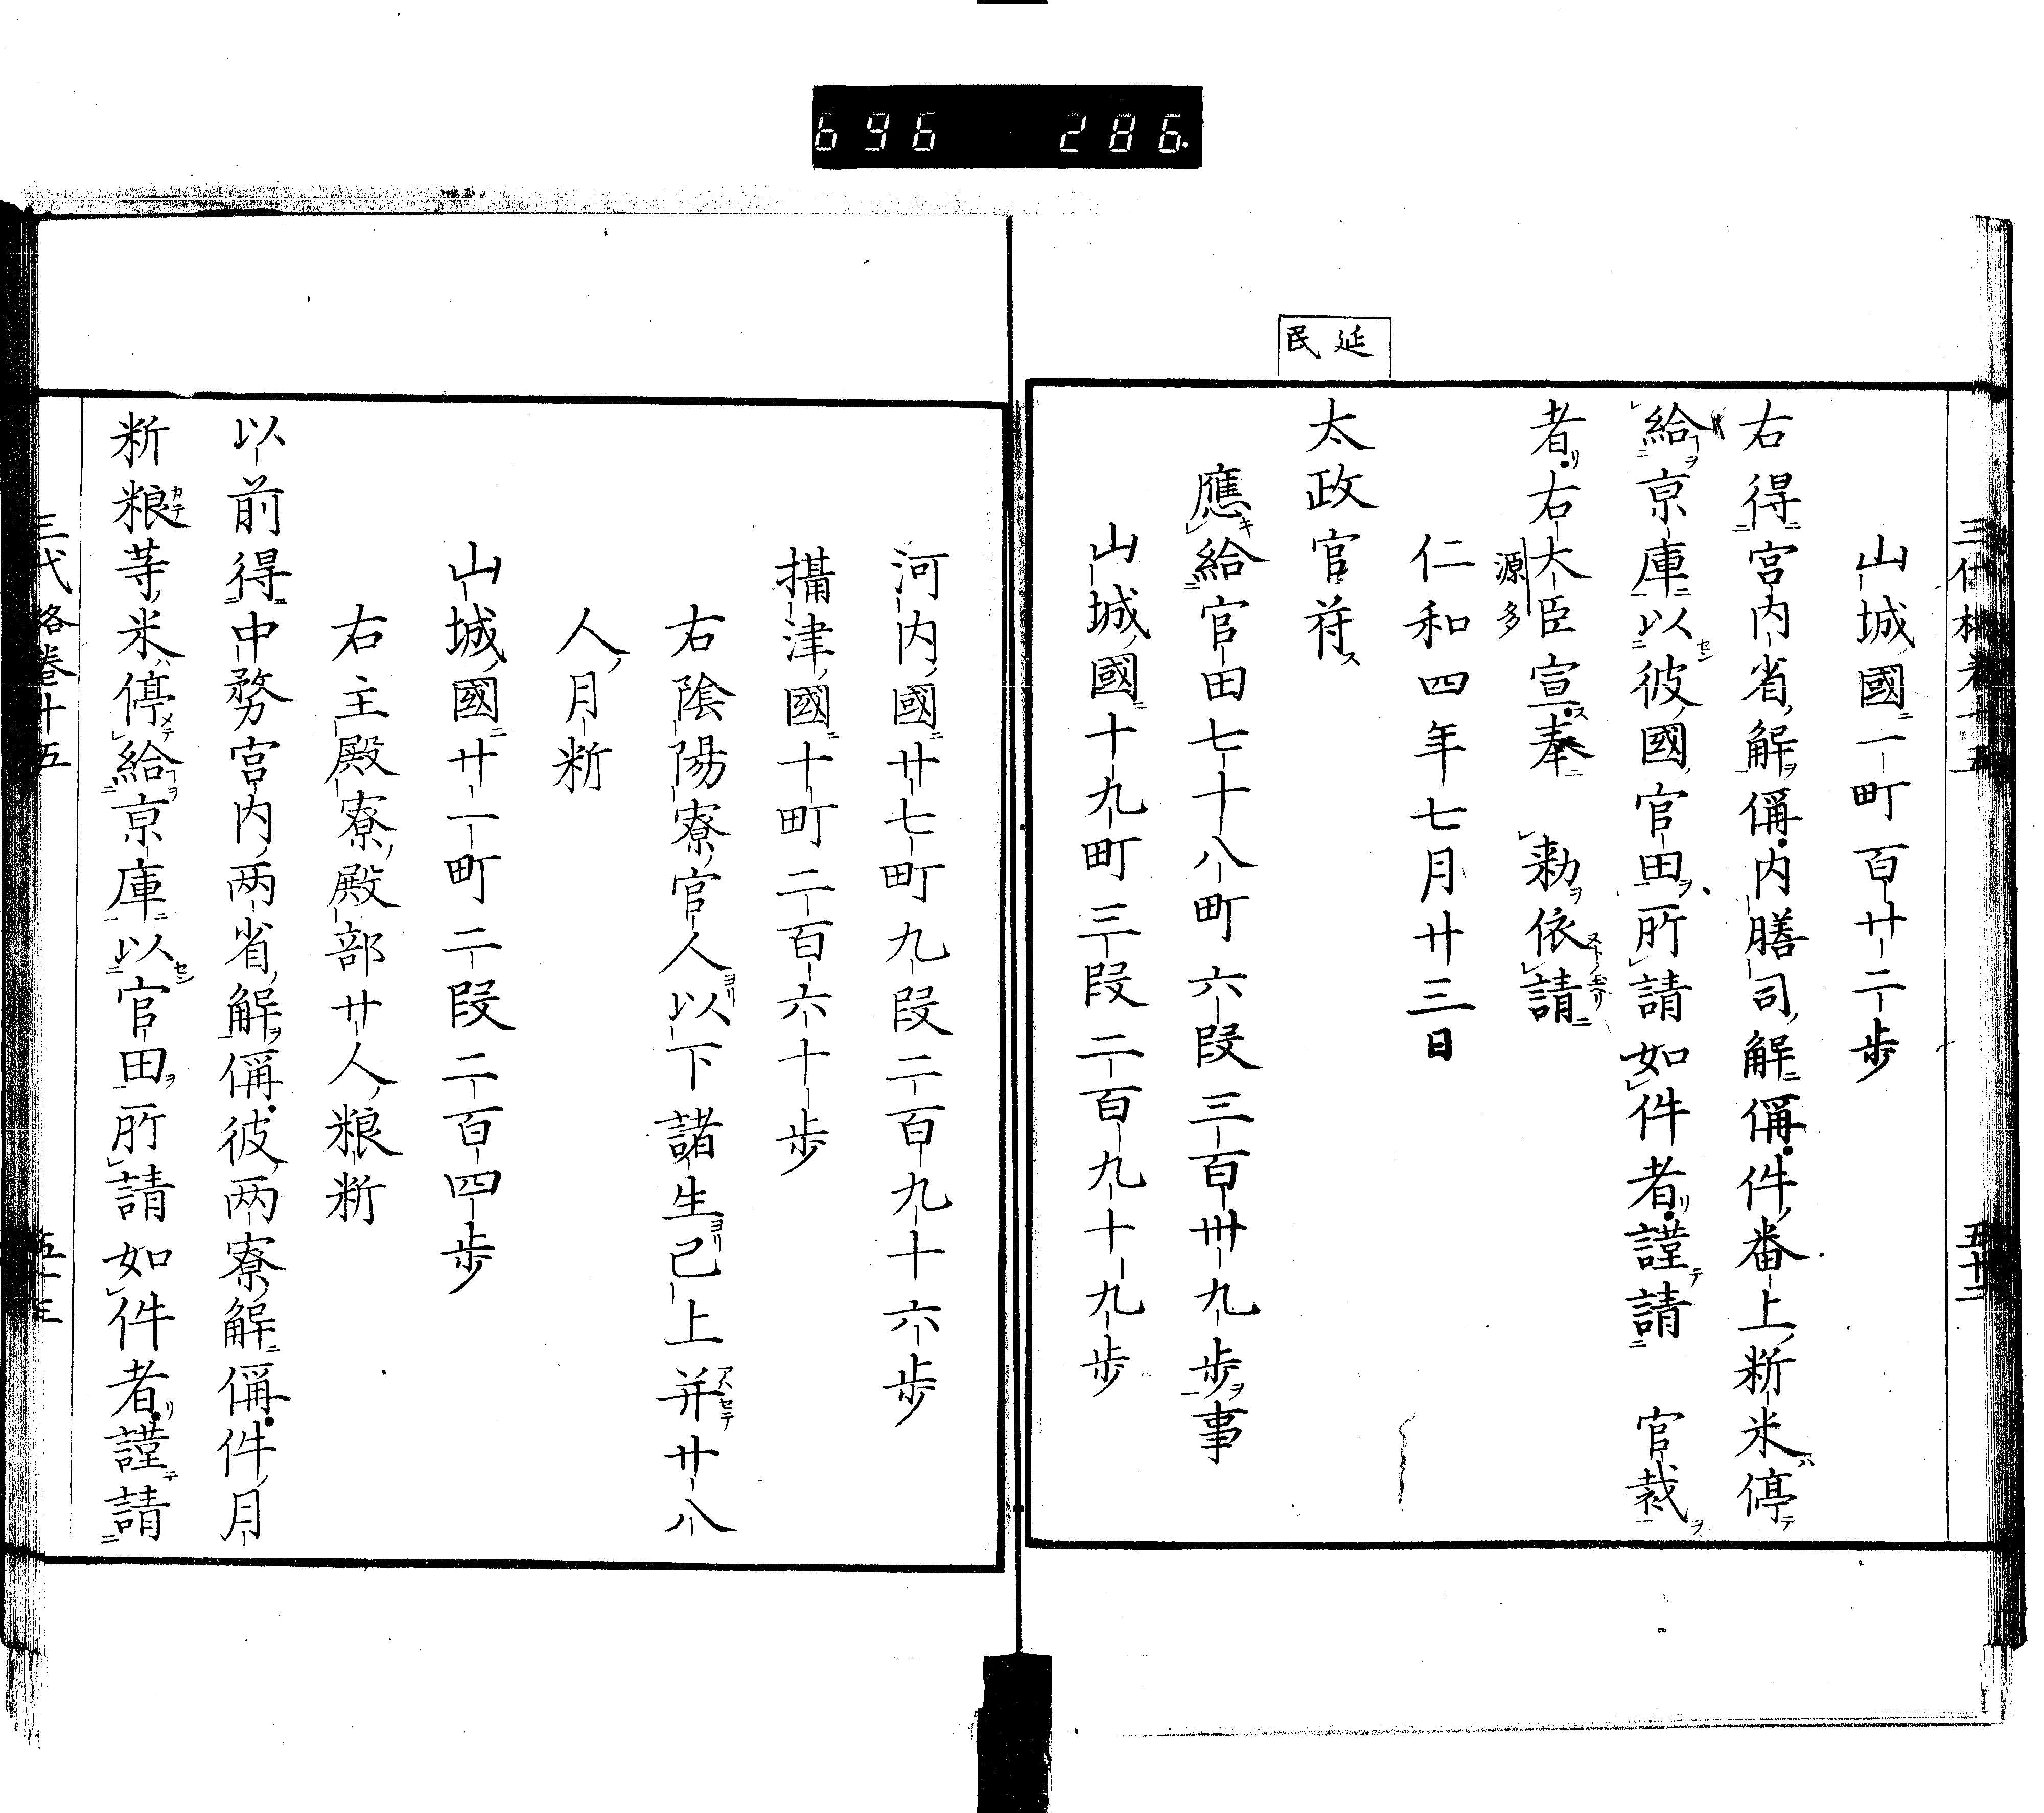 696 286.
三代格卷十五 五十二
山城國一町百廿二歩
右得宮内省解偁内膳司解偁件番上新米停
給京庫以彼國官田所請如件者謹請 官裁
者右大臣宣奉 勅依請
源多
仁和四年七月廿三日
延民
太政官符
應給官田七十八町六段三百卅九歩事
山城國十九町三段二百九十九歩
河内國廿七町九段二百九十六歩
攝津國十町二百六十歩
右陰陽寮官人以下諸生已上并廿八
人月新
山城國廿一町二段二百四歩
右主殿寮殿部廿人粮新
以前得中務宮内两省解偁彼两寮解偁件月
新粮等米停給京庫以官田所請如件者謹請
三代格卷十五 五十三